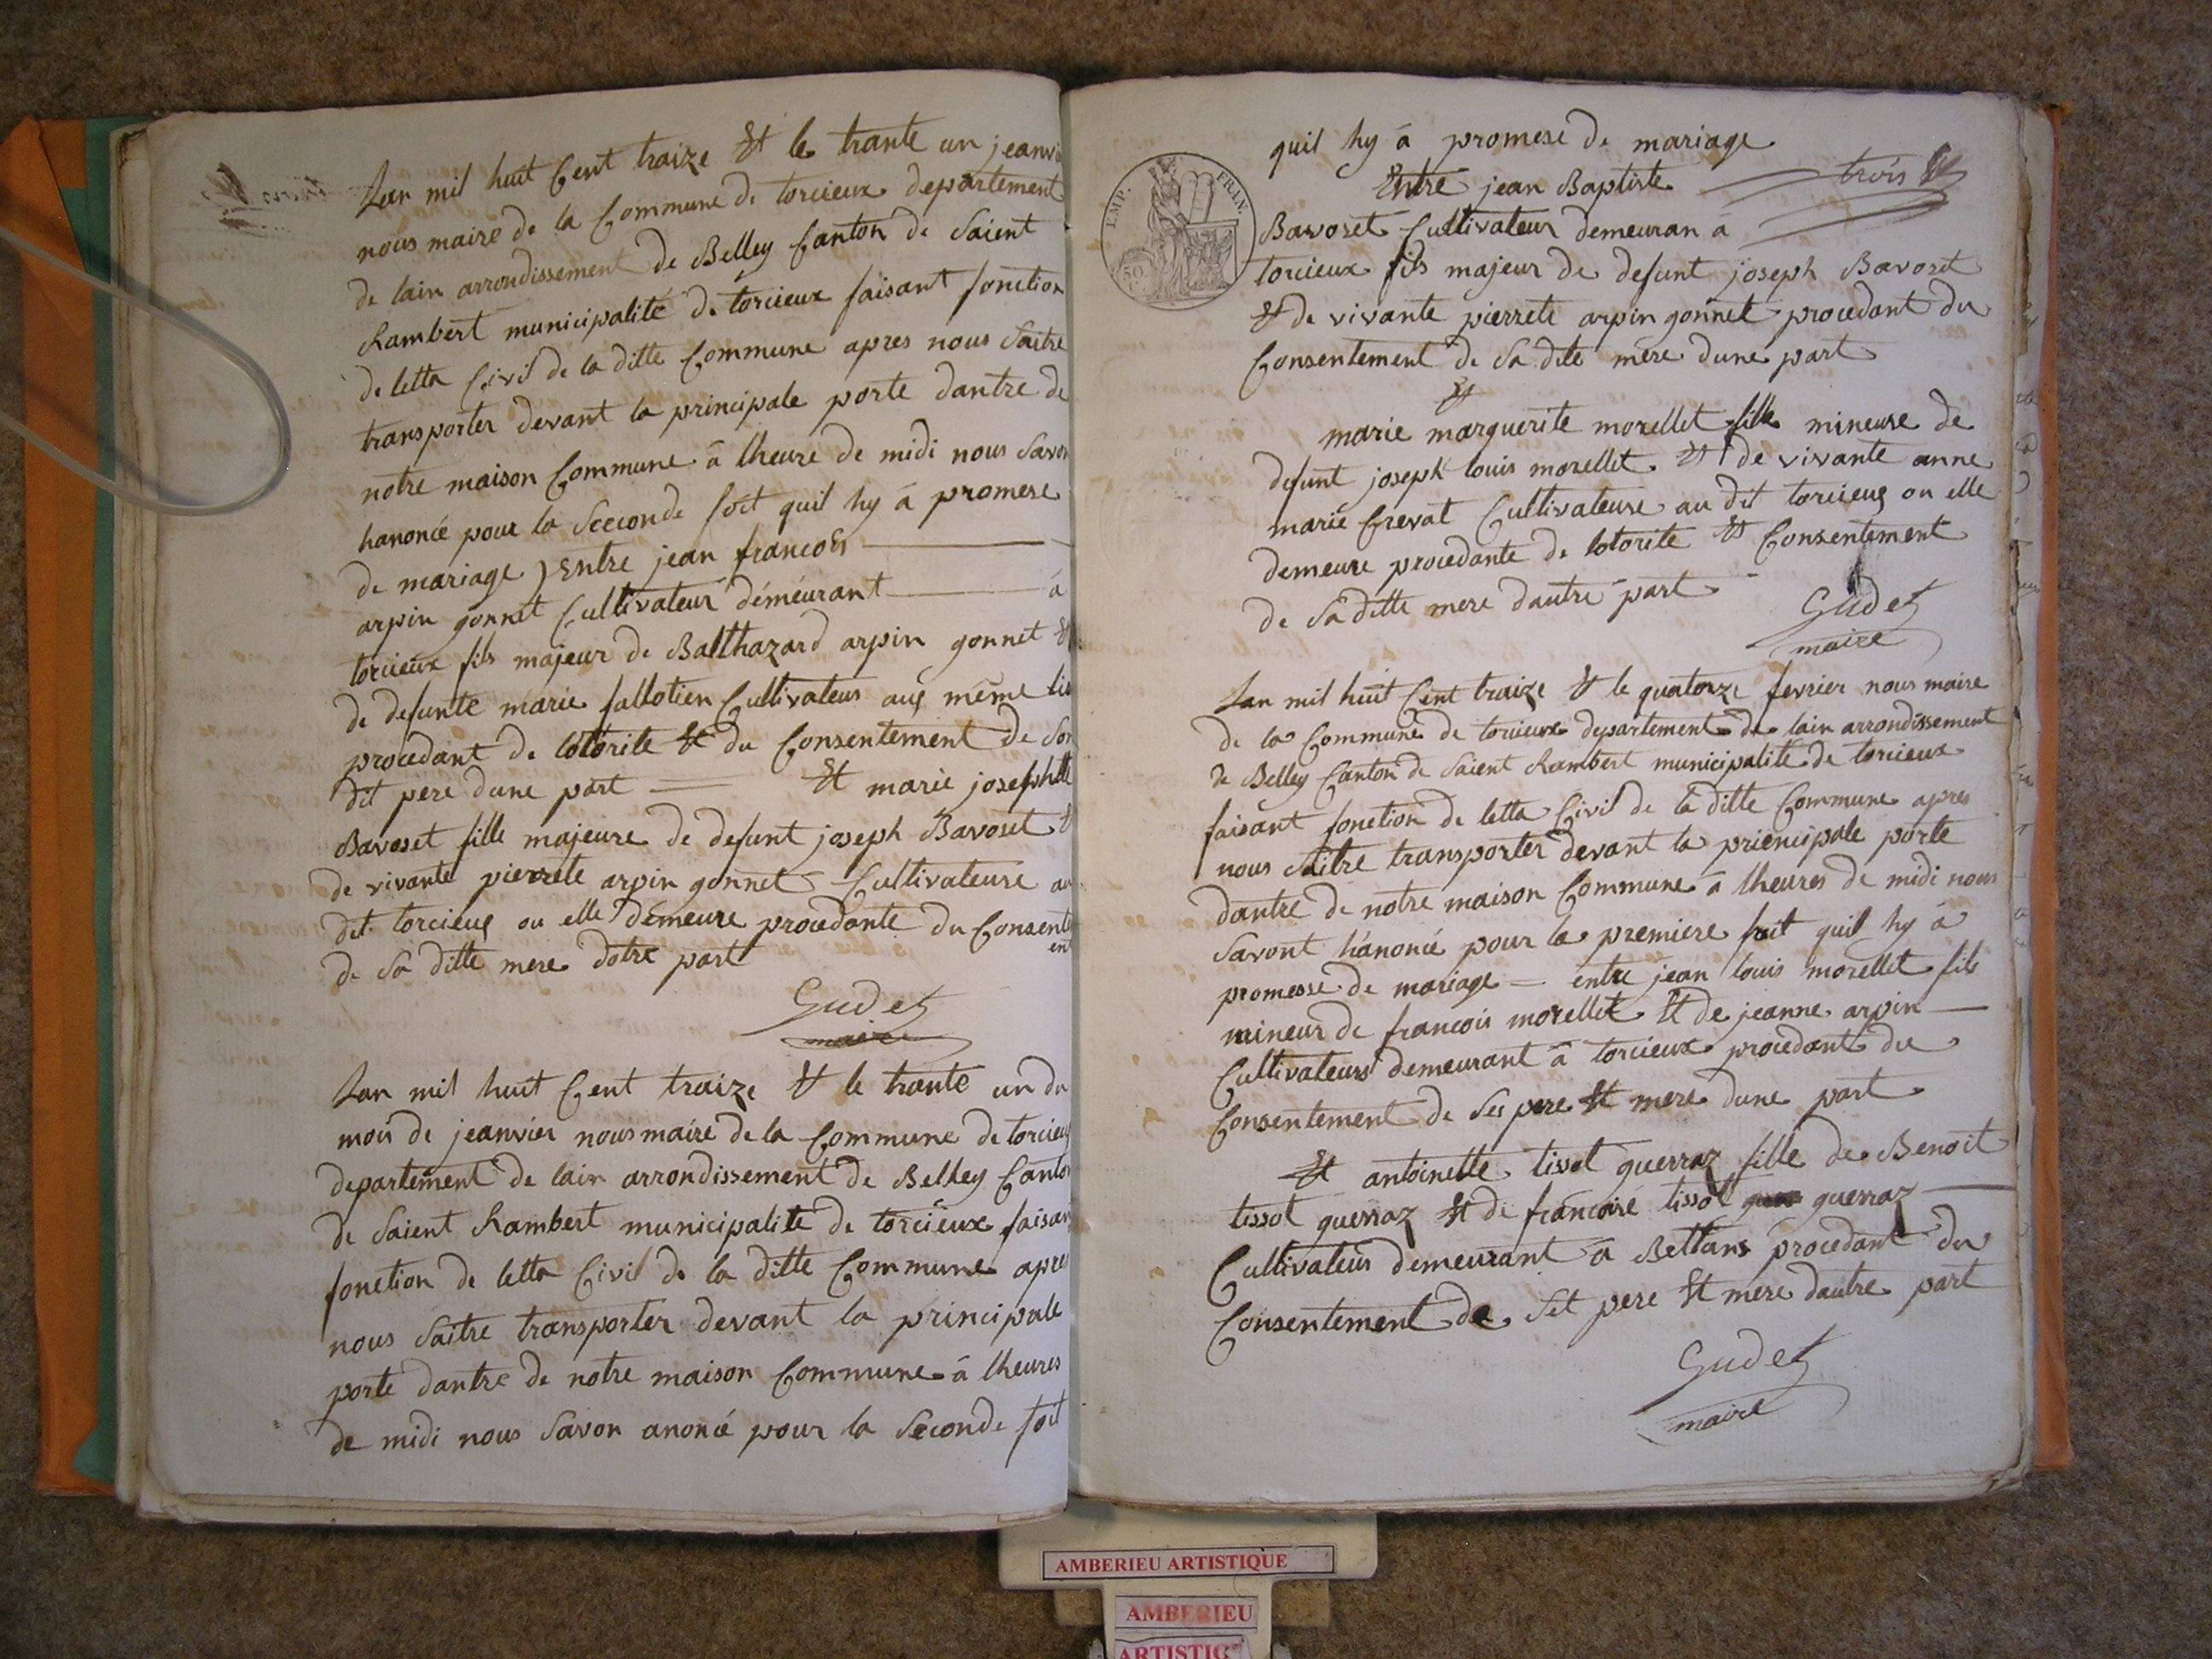 Lan mil huit Cent traize Et le trante un jeanvi
nous maire de la Commune de torcieux departement
de lain arrondissement de Belley Canton de Saient
Rambert municipalité de torcieux faisant fonction
de letta Civil de la ditte Commune apres nous Saitre
transporter devant la principale porte dantre de
notre maison Commune à lheure de midi nous Savon
hanoncé pour la Seconde foit quil hy à promese
de mariage Entre jean francois
arpin gonnet Cultivateur déméurant à
torcieux fils majeur de Balthazard arpin gonnet Et
de defunte marie fallotien Cultivateurs aux même lieu
procedant de lotorite Et du Consentement de Son
dit pere dune part Et marie josephtte
Bavoset fille majeure de defunt joseph Bavoset Et
de vivante pierrete arpin gonnet Cultivateure au
dit torcieux ou elle démeure procedante du Consente
ent
de Sa ditte mere dotre part
Gudet
maire
Lan mil huit Cent traize Et le trante un du
mois de jeanvier nous maire de la Commune de torcieux
departement de lain arrondissement de Belley Canton
de Saient Rambert municipalite de torcieux faisant
fonction de letta Civil de la ditte Commune apres
nous Saitre transporter devant la principale
porte dantre de notre maison Commune à lheures
de midi nous Savon anoncé pour la Seconde foit
quil hy à promese de mariage
trois
Entre jean Baptiste
Bavoset Cultivateur demeuran à
torcieux fils majeur de defunt joseph Bavoset
Et de vivante pierrete arpin gonnet procedant du
Consentement de Sa dite mere dune part
Et
marie marguerite morellet fille mineure de
defunt joseph louis morellet Et de vivante anne
marie Crevat Cultivateure au dit torcieux ou elle
demeure procedante de lotorite Et Consentement
de Sa ditte mere dautre part
Gudet
maire
IMP. FRAN.
50
Lan mil huit Cent traize Et le quatorze fevrier nous maire
de la Commune de torcieux departement de lain arrondissement
de Belley Canton de Saient Rambert municipalite de torcieux
faisant fonction de letta Civil de la ditte Commune apres
nous Saitre transporter devant la priencipale porte
dantre de notre maison Commune à lheures de midi nous
Savont hanoncé pour la premiere foit quil hy à
promesse de mariage entre jean louis morellet fils
mineur de francois morellet Et de jeanne arpin
Cultivateurs demeurant à torcieux procedant du
Consentement de Ses pere Et mere dune part
Et antoinette tissot guerraz fille de Benoit
tissot guerraz Et de francoise tissot guerraz
Cultivateurs demeurant à Bettans procedant du
Consentement de Set pere Et mere dautre part
Gudet
maire
AMBERIEU ARTISTIQUE
AMBERIEU
ARTISTIQ